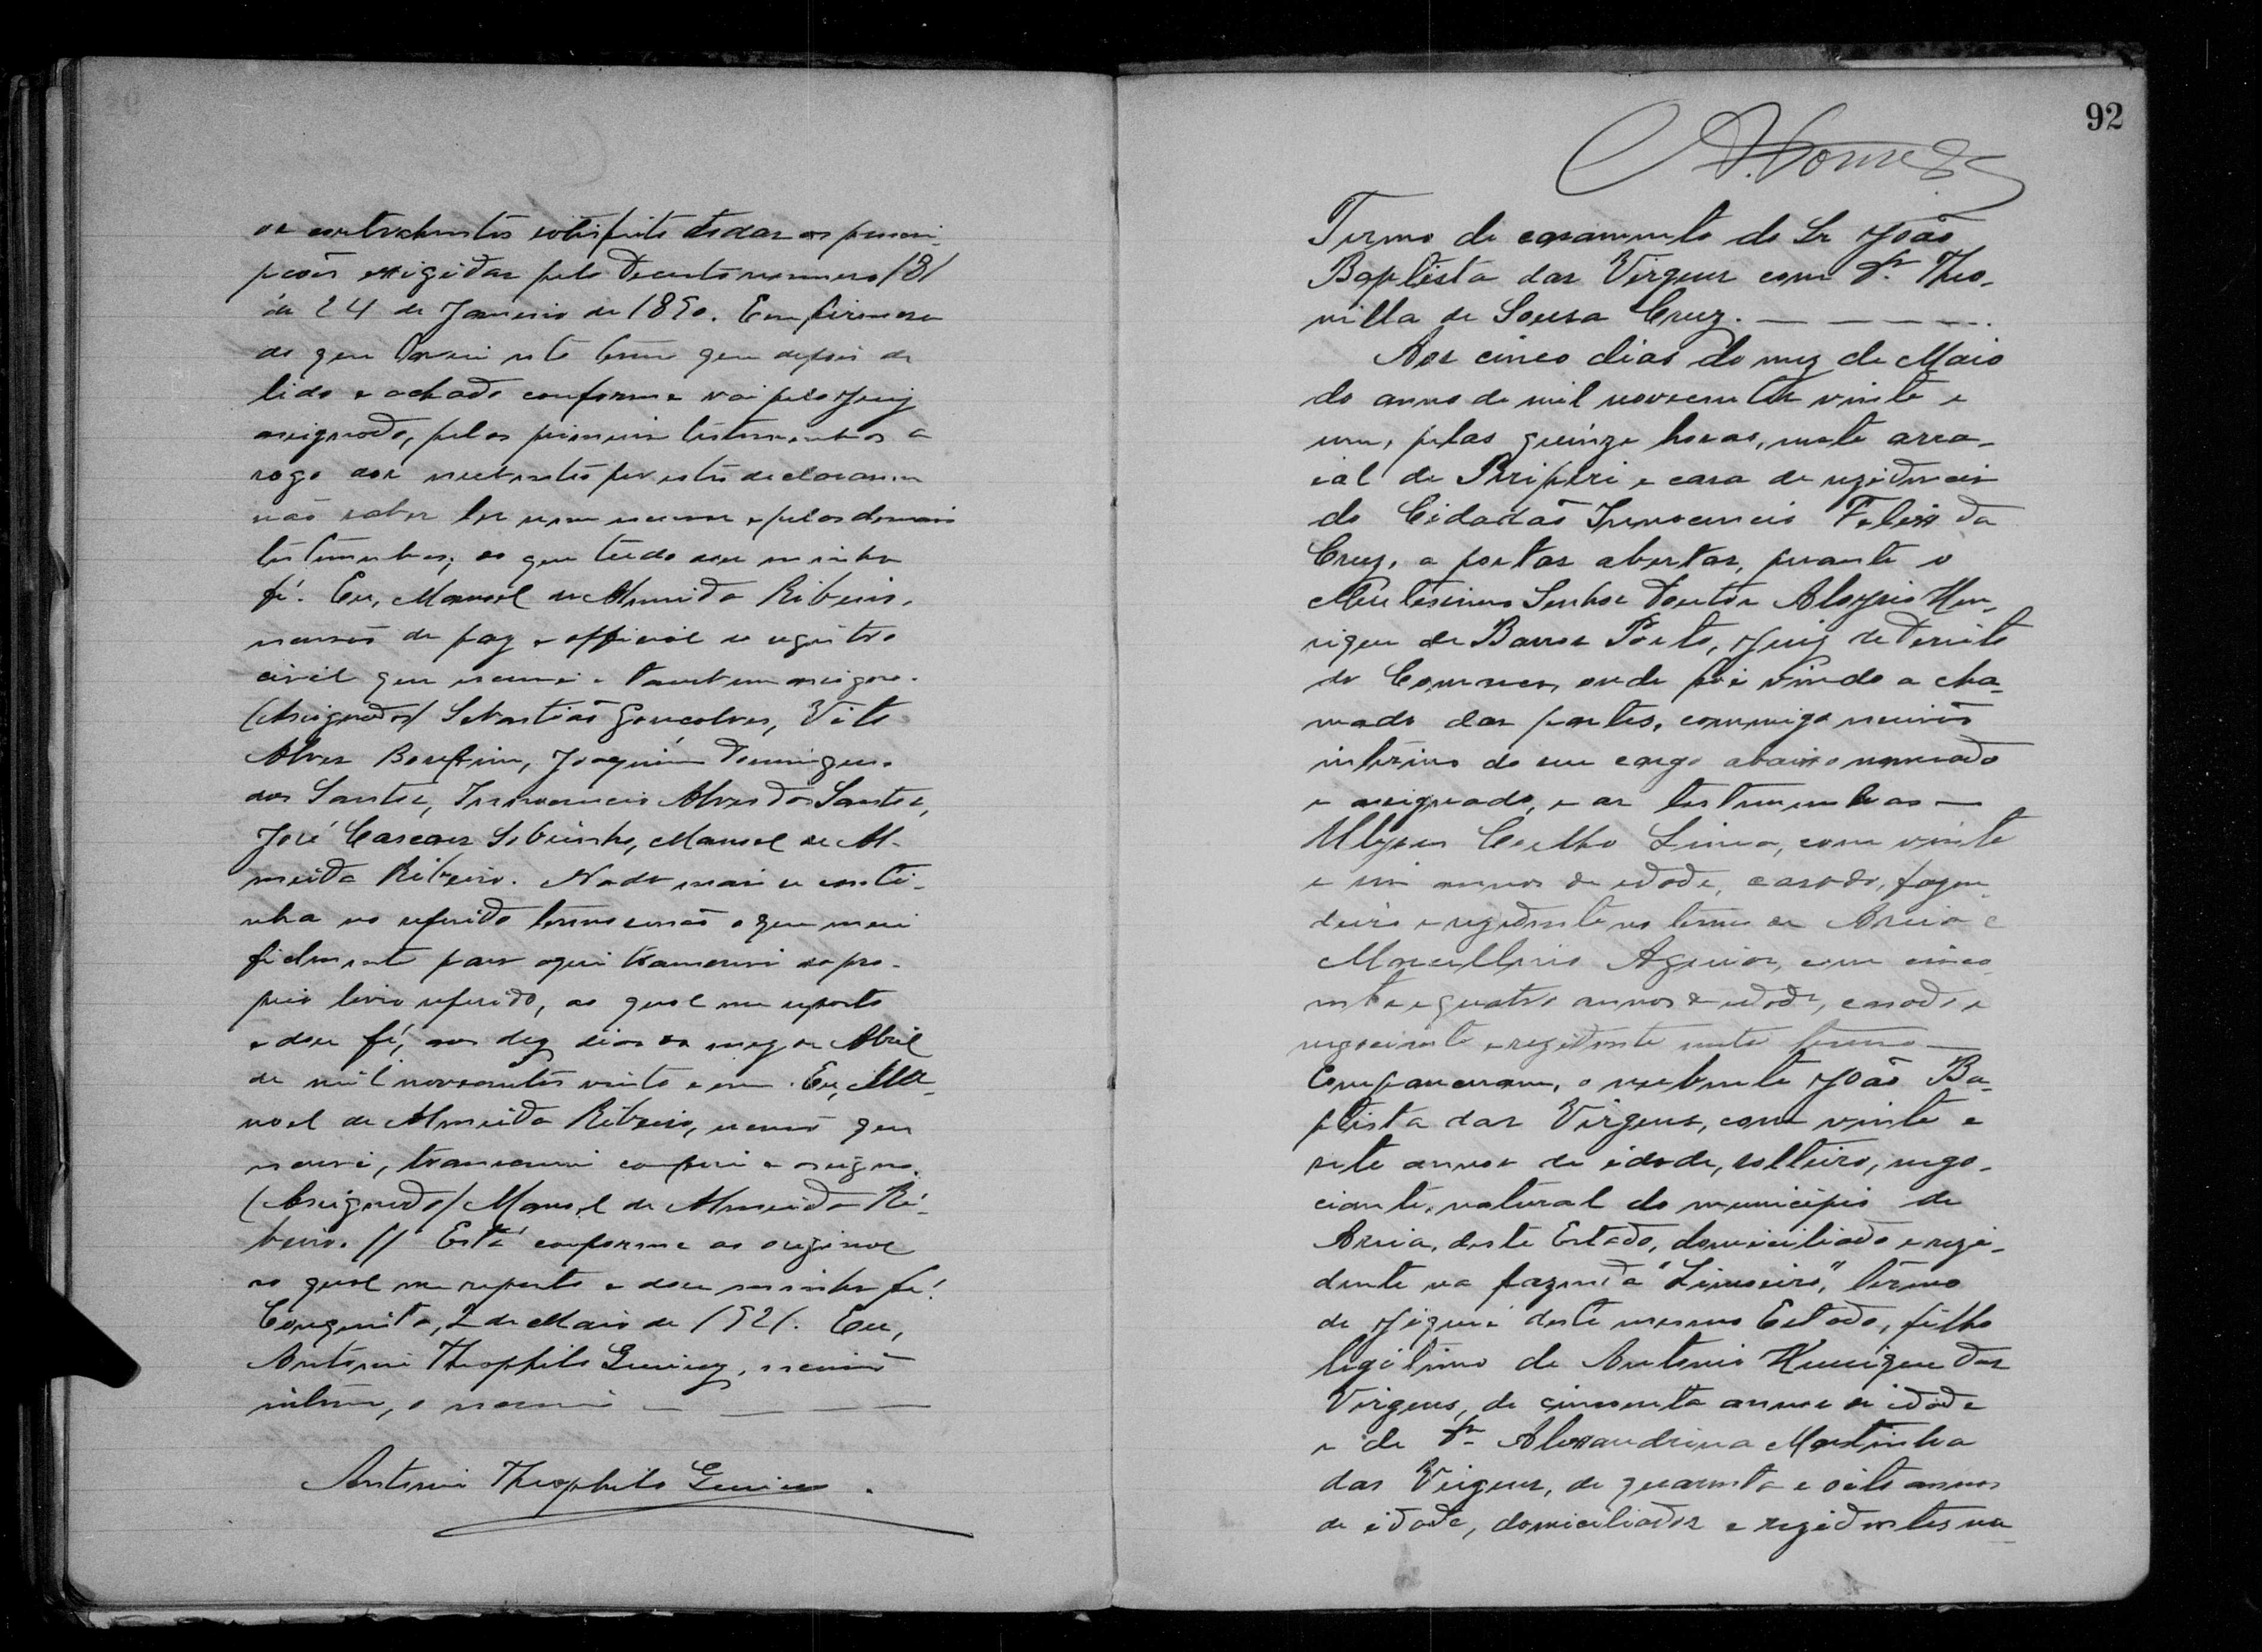 os contrahentes satisfeito todas as prescri-
pções exigidas pelo Decreto numero 181
de 24 de Janeiro de 1890. Em firmesa
do que lavrei este termo que depois de
lido e achado conforme vai pelo Juiz
assignado, pelas primeiras testemunhas a
rogo dos nubentes por estes declararem
não saber ler nem escrever e pelas demais
testemunhas, do que tudo dou minha
fé. Eu, Manoel de Almeida Ribeiro,
escrivão de paz e official do registro
civil que escrevi e tambem assigno.
(Assignados) Sebastião Gonçalves, Vito
Alves Bomfim, Joaquim Domingues
dos Santos, Innocencio Alves dos Santos,
José Sobrinho, Manoel de Al-
meida Ribeiro. Nada mais se conti-
nha no referido termo senão o que mui
fielmente para aqui transcrevi do pro-
prio livro referido, ao qual me reporto
e dou fé, aos dez dias do mez de Abril
de mil novecentos vinte e um. Eu, Ma-
noel de Almeida Ribeiro, escrivão que
escrevi, transcrevi conferi e assigno.
(Assignado) Manoel de Almeida Ri-
beiro. // Está conforme ao original
ao qual me reporto e dou minha fé.
Conquista, 2 de Maio de 1921. Eu,
Antonio Theophilo , escrivão
interino, o escrevi
Antonio Theophilo
92
Termo de casamento do Sr João
Baptista das Virgens com Da. Theo-
nilla de Sousa Cruz.
Aos cinco dias do mez de Maio
do anno de mil novecentos vinte e
um, pelas quinze horas, neste arra-
ial de Piripiri e casa de rezidencia
do Cidadão Innocencio Felix da
Cruz, a portas abertas, perante o
Meritissimo Senhor Doutor Aloysio Hen-
rique de Barros Porto, Juiz de Direito
da Comarca, onde foi vindo a cha-
mado das partes, commigo escrivão
interino do seu cargo abaixo nomeado
e assignado, e as testemunhas
Ulysses Coelho Lima, com vinte
e seis annos de edade, casado, fazen-
deiro e rezidente no termo de Areia e
Marcellino Aguiar, com cinco-
enta e quatro annos de edade, casado e
negociante e rezidente neste termo
Compareceram, o nubente João Ba-
ptista das Virgens, com vinte e
sete annos de idade, solteiro, nego-
ciante, natural do municipio de
Areia, deste Estado, domiciliado e rezi-
dente na fazenda "Limoeiro", termo
de Jequié deste mesmo Estado, filho
legitimo de Antonio Henrique das
Virgens, de cincoenta annos de idade
e de Da. Alexandrina Martinha
das Virgens, de quarenta e oito annos
de idade, domiciliados e rezidentes na